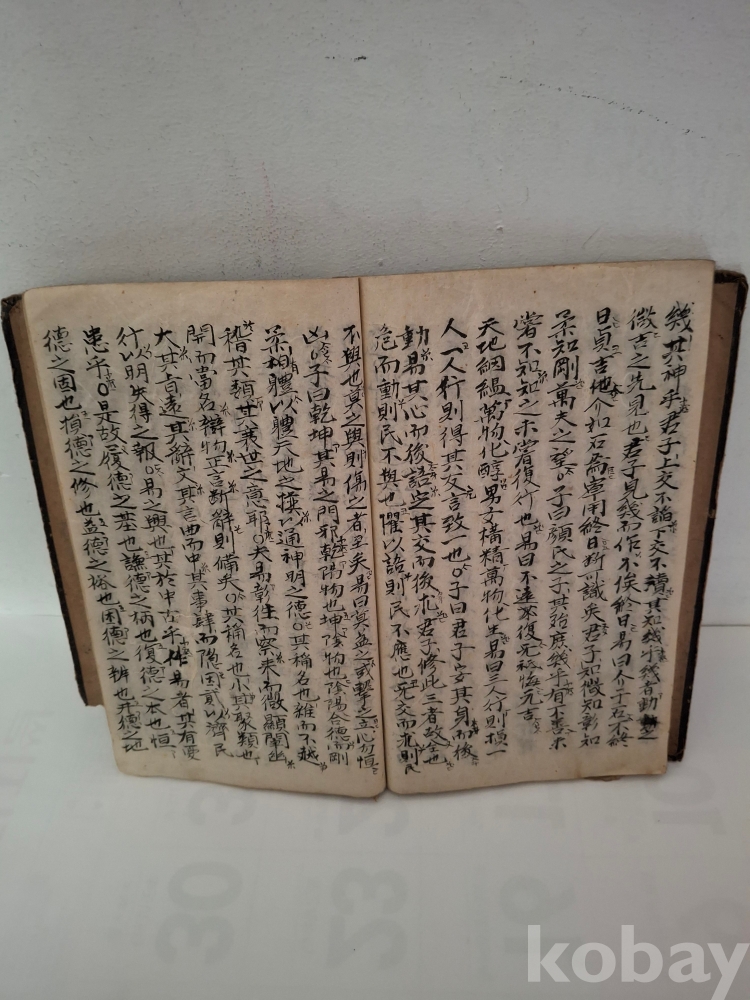 幾其神乎君子上交不諂下交不瀆其知幾乎幾者動之
微吉之先見也君子見幾而作不俟終日易曰介于石不終
日貞吉介如石焉寧用終日斷可識矣君子知微知彰知
柔知剛萬夫之望○子曰顔氏之子其殆庶幾乎有不善未
嘗不知知之未嘗復行也易曰不遠復无祗悔元吉
天地絪縕萬物化醇男女構精萬物化生易曰三人行則損一
人一人行則得其友言致一也○子曰君子安其身而後
動易其心而後語定其交而後求君子修此三者故全也
危而動則民不與也懼以語則民不應也无交而求則民
不與也莫之與則傷之者至矣易曰莫益之或擊之立心勿恒
凶○子曰乾坤其易之門邪乾陽物也坤陰物也陰陽合德而剛
柔有體以體天地之撰以通神明之德○其稱名也雜而不越
稽其類其衰世之意耶○夫易彰往而察來而微顯闡幽
開而當名辨物正言斷辭則備矣○其稱名也小其取類也
大其旨遠其辭文其言曲而中其事肆而隱因貳以濟民
行以明失得之報○易之興也其於中古乎作易者其有憂
患乎○是故履德之基也謙德之柄也復德之本也恒
德之固也損德之修也益德之裕也困德之辨也井德之地
kobay